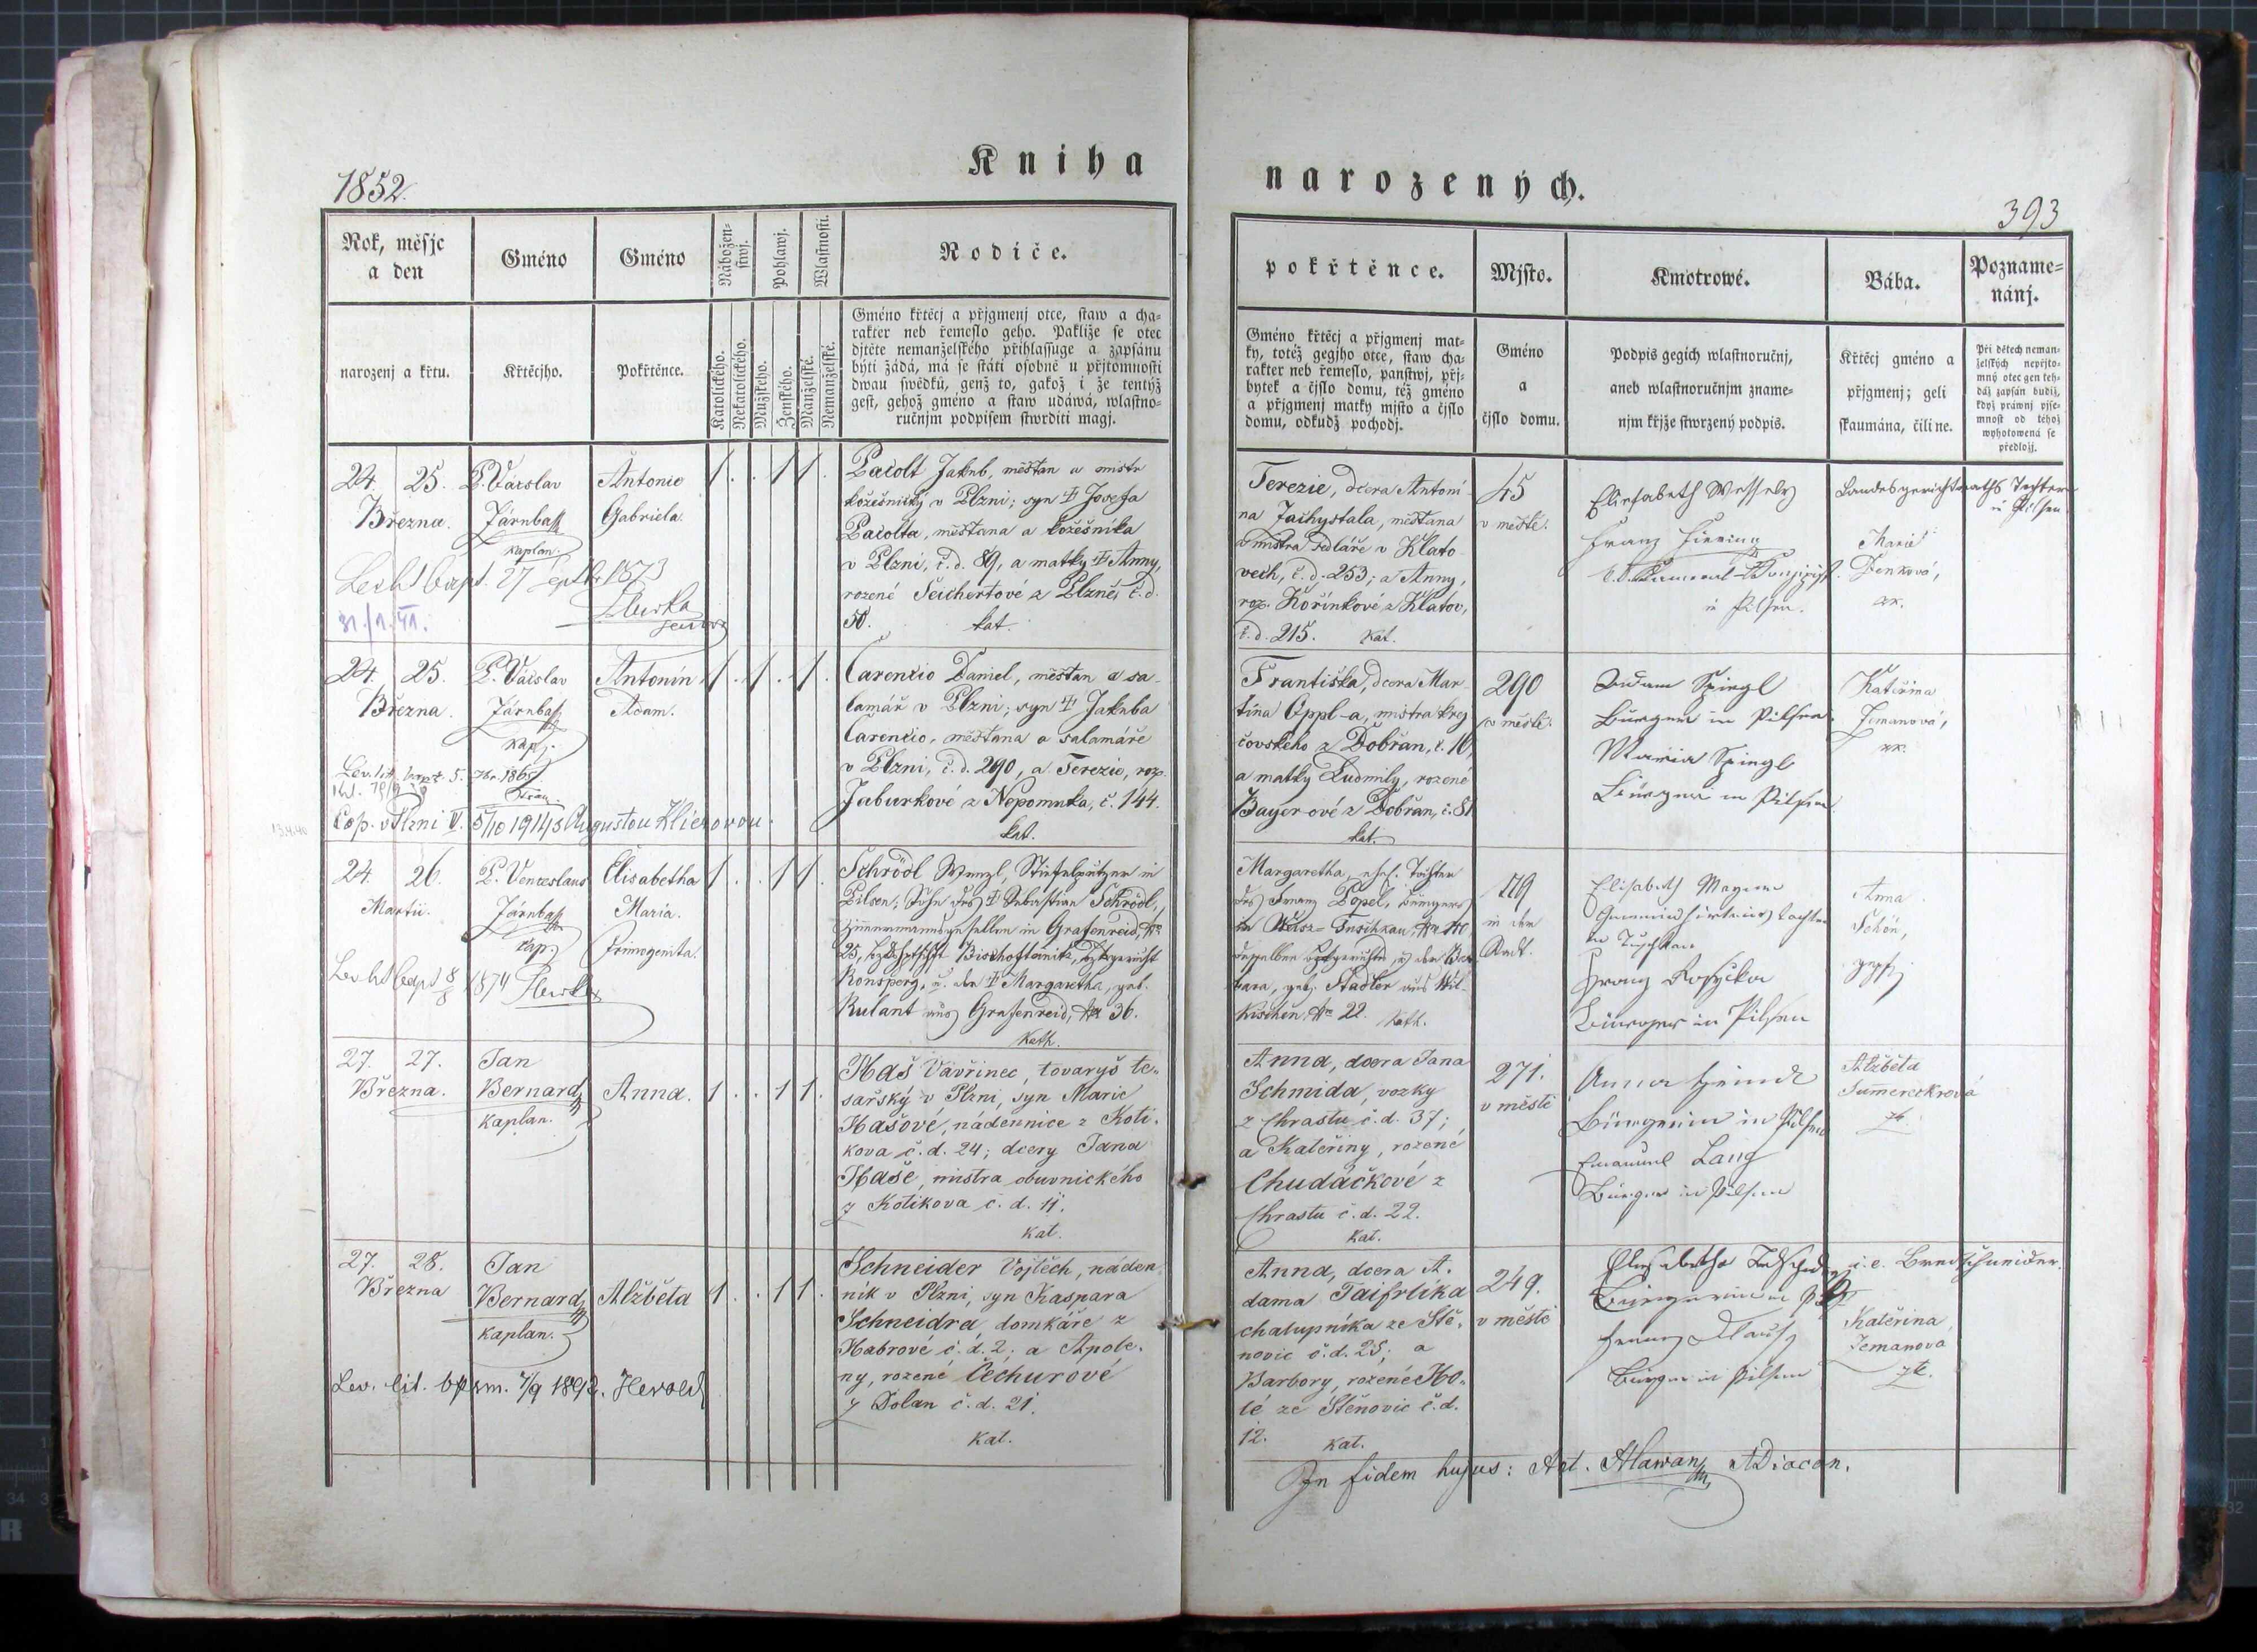 Kniha
narozených.
1852.
393
Rok, měsjc
a den
Gméno
Gméno
Nábožen-
stwj.
Pohlawj.
Wlastnosti.
Rodiče.
narozenj a křtu.
Křtěcjho.
Pokřtěnce.
Katolického.
Nekatolického.
Mužského.
Ženského.
Manželské.
Nemanželské.
Gméno křtěcj a přjgmenj otce, staw a cha-
rakter neb řemeslo geho. Pakliže se otec
djtěte nemanželského přihlassuge a zapsánu
býti žádá, má se státi osobně u přjtomnosti
dwau swědků, genž to, gakož i že tentýž
gest, gehož gméno a staw udáwá, wlastno-
ručnjm podpisem stwrditi magj.
pokřtěnce.
Mjsto.
Kmotrowé.
Bába.
Pozname=
nánj.
Gméno křtěcj a přjgmenj mat-
ky, totéž gegjho otce, staw cha-
rakter neb řemeslo, panstwj, přj-
bytek a čjslo domu, též gméno
a přjgmenj matky mjsto a čjslo
domu, odkudž pochodj.
Gméno
a
čjslo domu.
Podpis gegich wlastnoručnj,
aneb wlastnoručnjm zname-
njm křjže stwrzený podpis.
Křtěcj gméno a
přjgmenj; geli
skaumána, čili ne.
Při dětech neman-
želských nepřjto-
mný otec gen teh-
dáž zapsán budiž,
když práwnj pjse-
mnost od téhož
wyhotowená se
předložj.
24. 25.
Března.
P. Václav
Járnbaß
kaplan.
Antonie
Gabriela.
1 . . 1 1 .
Pacolt Jakub, měštan a mistr
kožešnický v Plzni; syn † Josefa
Pacolta, měštana a kožešníka
v Plzni, č.d. 89, a matky † Anny,
rozené Seichertové z Plzně, č.d.
50. kat.
Terezie, dcera Antoní-
na Jachystala, měštana
a mistra sedláře v Klato-
vech, č.d. 253; a Anny,
roz. Kořínkové z Klatov,
č.d. 215. kat.
45
v městě.
Elisabeth Wessely
Landesgerichtsraths Tochter
in Pilsen
Franz
in Pilsen.
Marie
Denková,
27 Septbr 1873
24. 25.
Března.
P. Václav
Járnbaß
kap.
Antonín
Adam.
1 . 1 . 1 .
Carencio Daniel, měštan a sa-
lamář v Plzni; syn † Jakuba
Carencio, měštana a salamáře
v Plzni, č.d. 290, a Terezie, roz.
Jaburkové z Nepomuka, č. 144.
kat.
Františka, dcera Mar-
tina Oppl-a, mistra krej-
čovského z Dobřan, č. 10,
a matky Ludmily, rozené
Bayer-ové z Dobřan, č. 81
kat.
290
v městě.
Adam Spiegl
Bürger in Pilsen.
Maria Spiegl
Bürgeri in Pilsen.
Kateřina
Zemanová,
Cop. v Plzni V. 5/10 1914 s Augustou Klierovou.
24. 26.
Martii.
P. Venceslaus
Járnbaß
kap.
Elisabetha
Maria.
Primogenita.
1 . . 1 1 .
Schrödl Wenzl, Stiefelputzer in
Pilsen; Sohn des † Sebastian Schrödl,
Zimmermannsgesellen in Grafenreid, Nr.
25, Bischofteinitz,
Ronsperg, u. der † Margaretha, geb.
Rulant aus Grafenreid, Nr. 36.
kath.
Margaretha, ehel. Tochter
des Franz Popel, Bürgers
in Weiss-Tuschkau, Nr. 40
desselben u. der Bar-
bara, geb. Stadler aus Wil-
kischen Nr. 22. kath.
in der
Stadt.
Elisabeth
in Tuschkau
Franz
Bürger in Pilsen
Anna
Schön,
gepr.
27. 27.
Března.
Jan
Bernard
kaplan.
Anna.
1 . . 1 1 .
Haš Vavřinec, tovaryš te-
sařský v Plzni, syn Marie
Hašové, nádennice z Koti-
kova č.d. 24; dcery Jana
Haše, mistra obuvnického
z Kotikova č.d. 11.
kat.
Anna, dcera Jana
Schmida, vozky
z Chrastu č.d. 37;
a Kateřiny, rozené
Chudáčkové z
Chrastu č.d. 22.
kat.
271.
v městě
Anna
Bürgerin in Pilsen
Emanuel Lang
Bürger in Pilsen
Alžběta
27. 28.
Března
Jan
Bernard
kaplan.
Alžběta
1 . . 1 1 .
Schneider Vojtěch, náden-
ník v Plzni, syn Kaspara
Schneidra, domkáře z
Habrové č.d. 2; a Apole-
ny, rozené Čechurové
z Dolan č.d. 21.
kat.
Anna, dcera A-
dama Taifrlíka
chalupníka ze Ště-
novic č.d. 25; a
Barbory, rozené Ho-
lé ze Štěnovic č.d.
12. kat.
249.
v městě
Elisabetha
i.e. Bretschneider.
Bürgerin in
Bürger in Pilsen
Kateřina
Zemanová
Lev. lit. bpsm. 7/9 1892. Herold
In fidem hujus: Ant. Hlawan ADiacon.